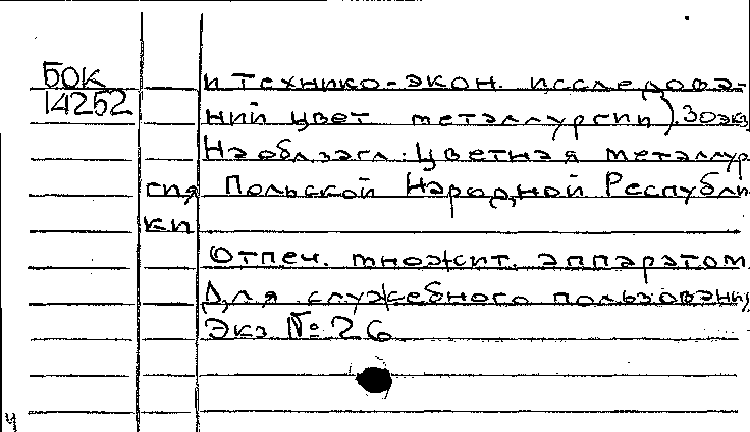 БОК
14252
и технико-экон. исследова-
ний цвет металлургии). 30 экз
На обл. загл.: Цветная металлур
гия Польской Народной Республи
ки
Отпеч. множит. аппаратом.
Для служебного пользования
Экз № 26
4